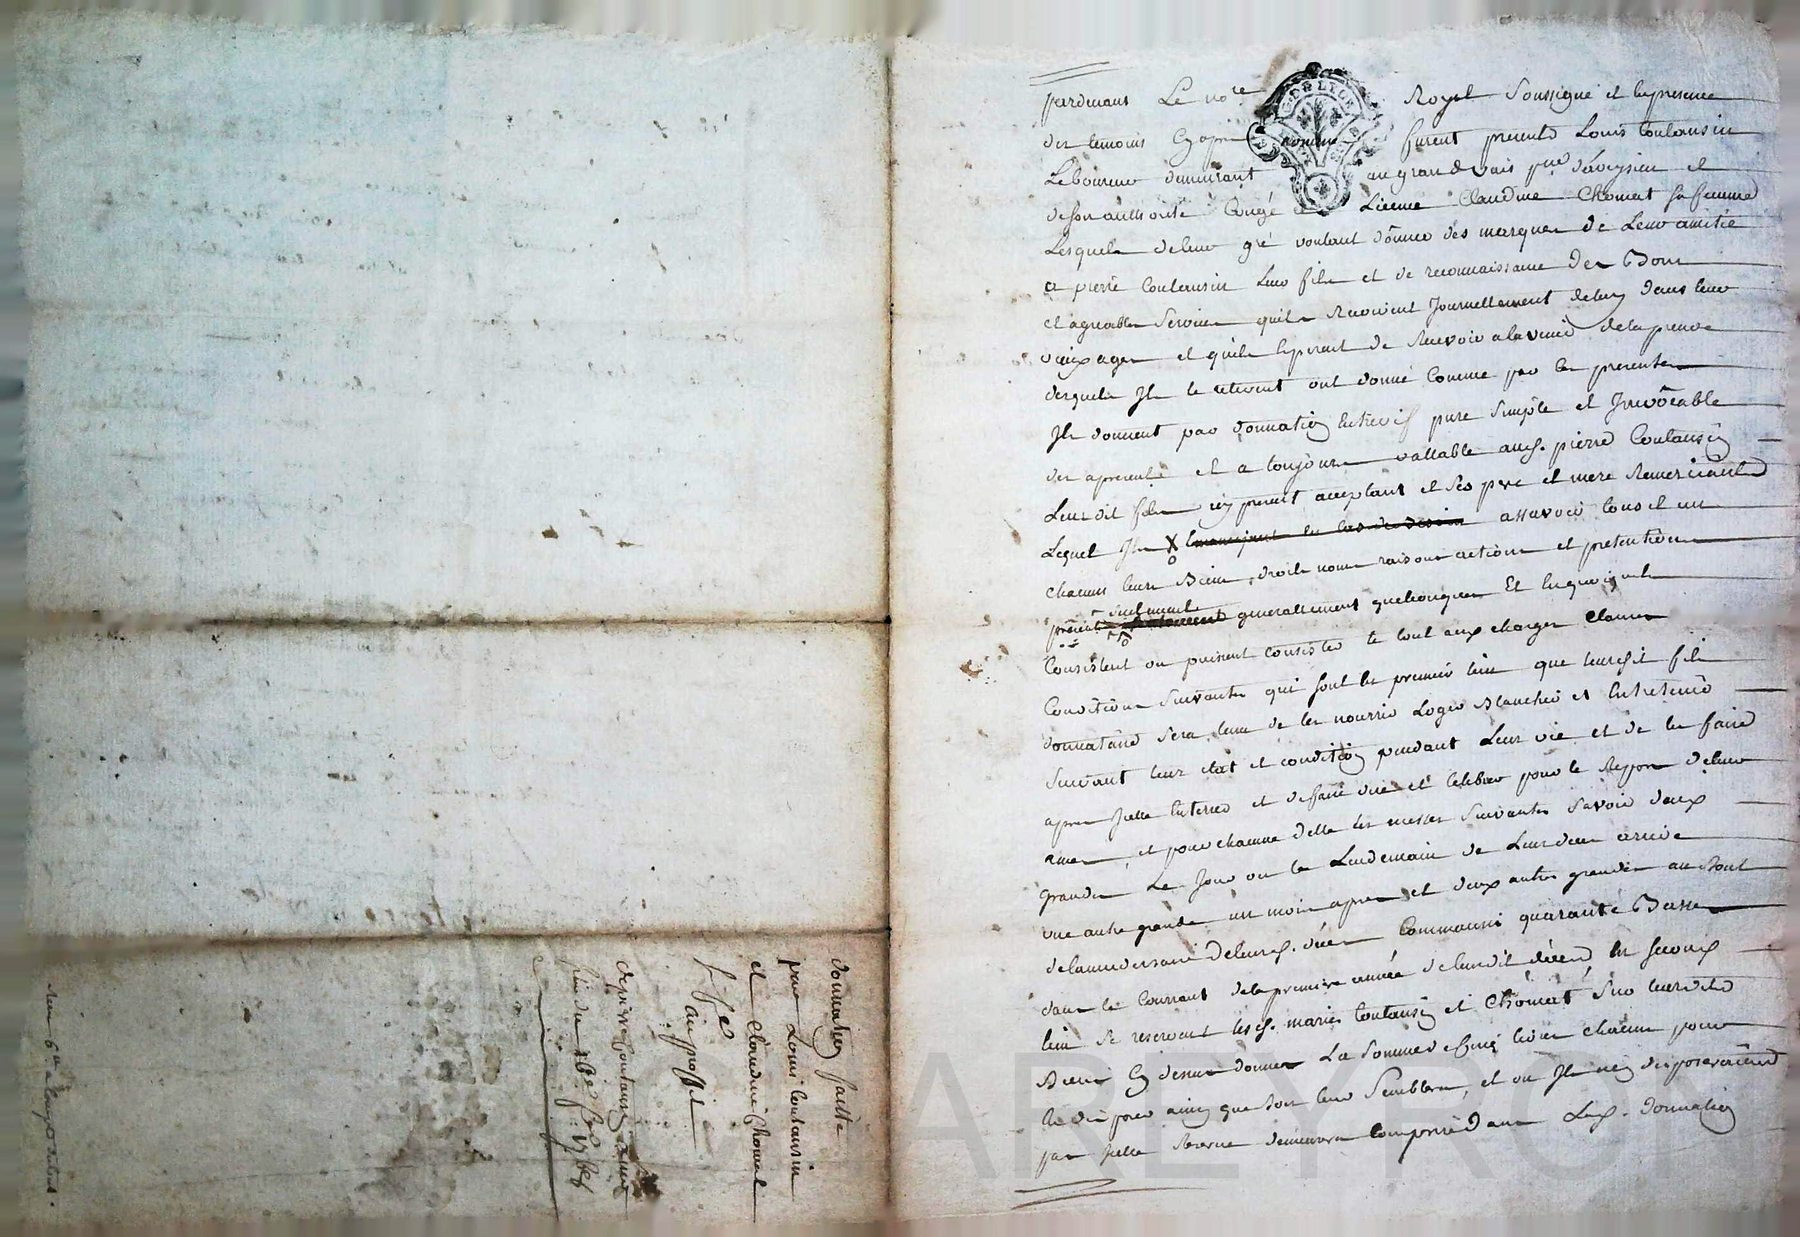 pardevant Le no.re Royal Soussigné et En presence
des temoins Cy apres furent presents Louis Coutansin
Laboureur demeurant au grand vais p.sse d'aveysieu et
de son authorité Congé et Licence Claudine Chomat sa femme
Lesquels de leur gré voulant donner des marques de Leur amitié
a pierre Coutansin Leur fils et de reconnaissance Des Bons
et agreables Services quils Recoivent Journellement de luy dans leur
vieux ages et quils Esperent de Recevoir a lavenir de la preuve
desquels Ils le relevent ont donné Comme par les presentes
Ils donnent par donnation Entrevifs pure Simple et Irrevocable
des apresent et a toujours vallable aud. pierre Coutansin
Leur dit fils icy present acceptant et Ses pere et mere Remerciant
Lequel Ils X assavoir tous et un
chacuns leurs Biens, droits noms raisons actions et pretentions
presents generallement quelconques Et En quoi quils
Consistent ou puissent Consister le tout aux charges Clauses
Conditions Suivantes qui sont En premier lieu que leurdit fils
donnataire Sera tenu de les nourrir Loger Blanchir et Entretenir
Suivant leur etat et condition pendant Leur vie et de les faire
apres Icelle Enterrer et de faire dire et celebrer pour le Repos de leur
ames, et pour chacune delle les messes Suivantes Savoir deux
grandes Le Jour ou le Lendemain de Leur deces arrivé
une autre grande un mois apres et deux autres grandes au Bout
de lanniversaire de leurs d. deces Commouns quarante Basses
dans le Courrant de la premiere année de leurdit deces En Second
lieu Se reservent lesd. mariés Coutansin et Chomat Sur leursdits
Biens Cy dessus donnés La Somme de Cinq livres chacun pour
En disposer ainsy que bon leur Semblera, et ou Ils n'en disposeroient
pas Icelle Reserve demeurera Comprise dans Lad. donnation
donnation faitte
par Louis Coutansin
et Claudine Chomat
au proffit
de pierre Coutansin leur
fils du